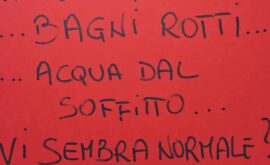 ...BAGNI ROTTI...
... ACQUA DAL
SOFFITTO...
VI SEMBRA NORMALE?